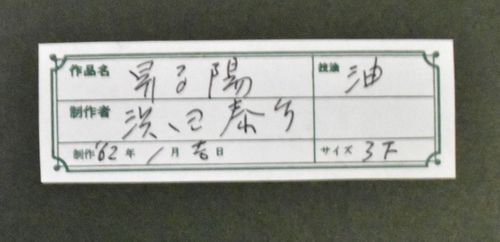 作品名 昇る陽 技法 油
制作者 浜田泰
制作 '62年 1月 吉日 サイズ 3F